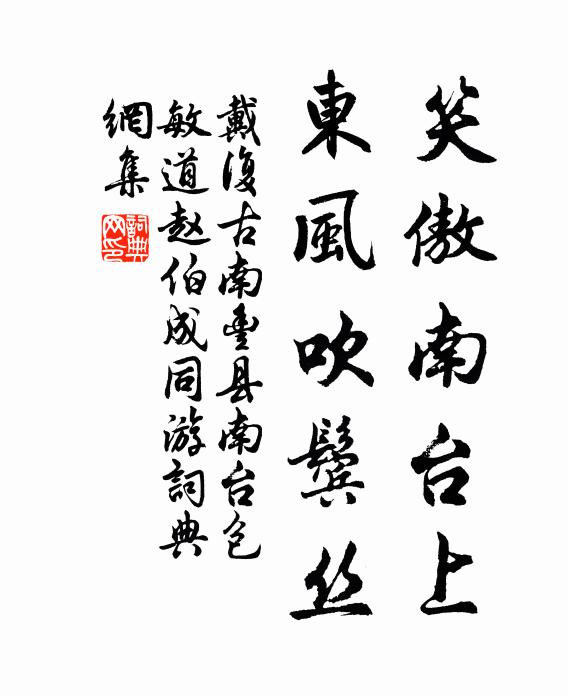 笑傲南台上
東風吹鬢丝
戴復古南豊县南台包
敏道赵伯成同游詞典
網集
詞典
网印